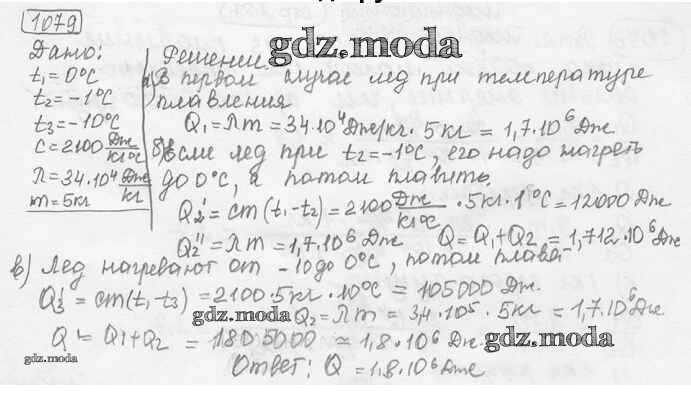 1079
Дано:
t₁=0°C
t₂=-1°C
t₃=-10°C
C=2100 Дж/кг°C
λ=34·10⁴ Дж/кг
m=5кг
Решение.
gdz.moda
а) В первом случае лед при температуре
плавления
Q₁=λm=34·10⁴ Дж/кг·5кг=1,7·10⁶ Дж.
б) Если лед при t₂=-1°C, его надо нагреть
до 0°C, а потом плавить.
Q₂'=cm(t₁-t₂)=2100 Дж/кг°C·5кг·1°C=12000 Дж
Q₂''=λm=1,7·10⁶ Дж Q=Q₁+Q₂=1,712·10⁶ Дж
в) Лед нагревают от -10 до 0°C, потом плава
Q₃'=cm(t₁-t₃)=2100·5кг·10°C=105000 Дж.
gdz.moda Q₂=λm=3,4·10⁵·5кг=1,7·10⁶ Дж.
Q=Q₁+Q₂=1805000≃1,8·10⁶ Дж. gdz.moda
gdz.moda
Ответ: Q=1,8·10⁶ Дж